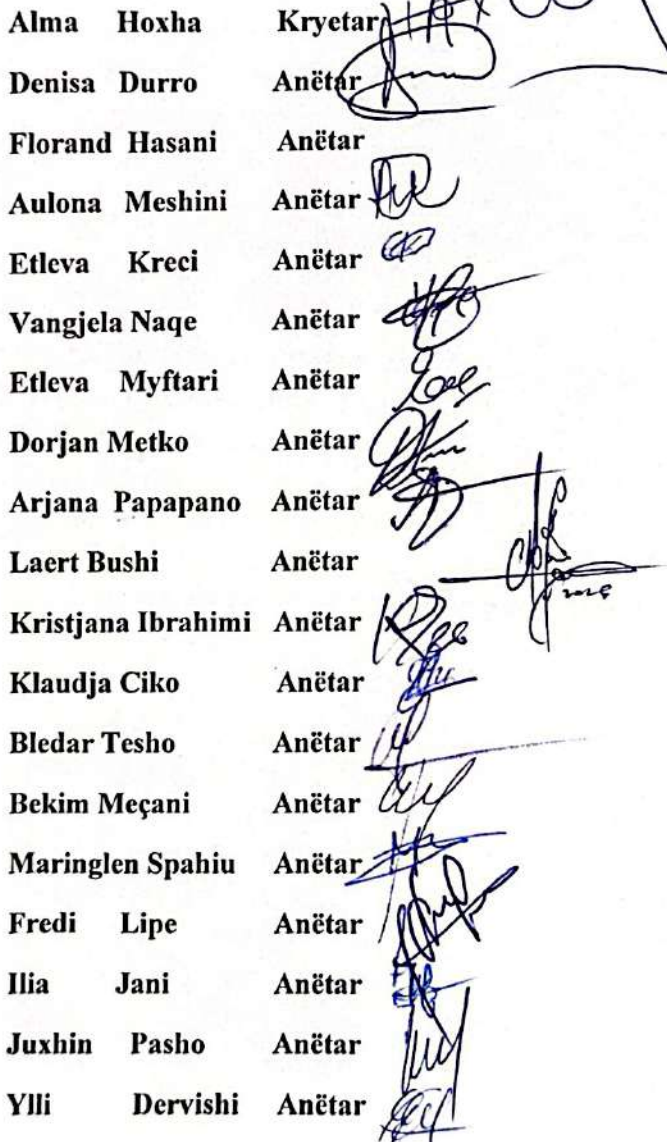 Alma Hoxha Kryetar
Denisa Durro Anëtar
Florand Hasani Anëtar
Aulona Meshini Anëtar
Etleva Kreci Anëtar
Vangjela Naqe Anëtar
Etleva Myftari Anëtar
Dorjan Metko Anëtar
Arjana Papapano Anëtar
Laert Bushi Anëtar
Kristjana Ibrahimi Anëtar
Klaudja Ciko Anëtar
Bledar Tesho Anëtar
Bekim Meçani Anëtar
Maringlen Spahiu Anëtar
Fredi Lipe Anëtar
Ilia Jani Anëtar
Juxhin Pasho Anëtar
Ylli Dervishi Anëtar